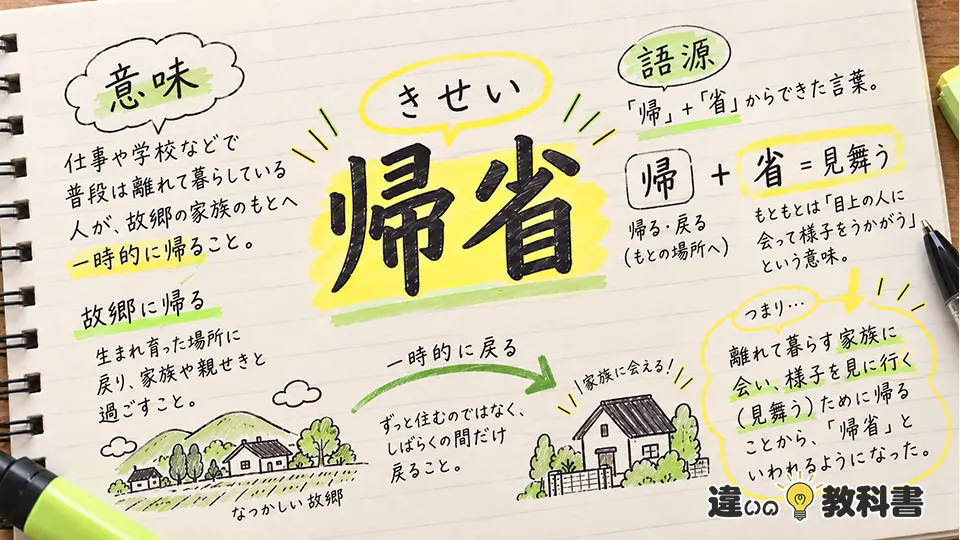 意味
仕事や学校などで
普段は離れて暮らしている
人が、故郷の家族のもとへ
一時的に帰ること。
故郷に帰る
生まれ育った場所に
戻り、家族や親せきと
過ごすこと。
なつかしい故郷
きせい
帰省
一時的に戻る
ずっと住むのではなく、
しばらくの間だけ
戻ること。
家族に会える!
語源
「帰」+「省」からできた言葉。
帰 + 省=見舞う
帰る・戻る
(もとの場所へ)
もともとは「目上の人に
会って様子をうかがう」
という意味。
つまり…
離れて暮らす家族に
会い、様子を見に行く
(見舞う)ために帰る
ことから、「帰省」と
いわれるようになった。
違いの教科書